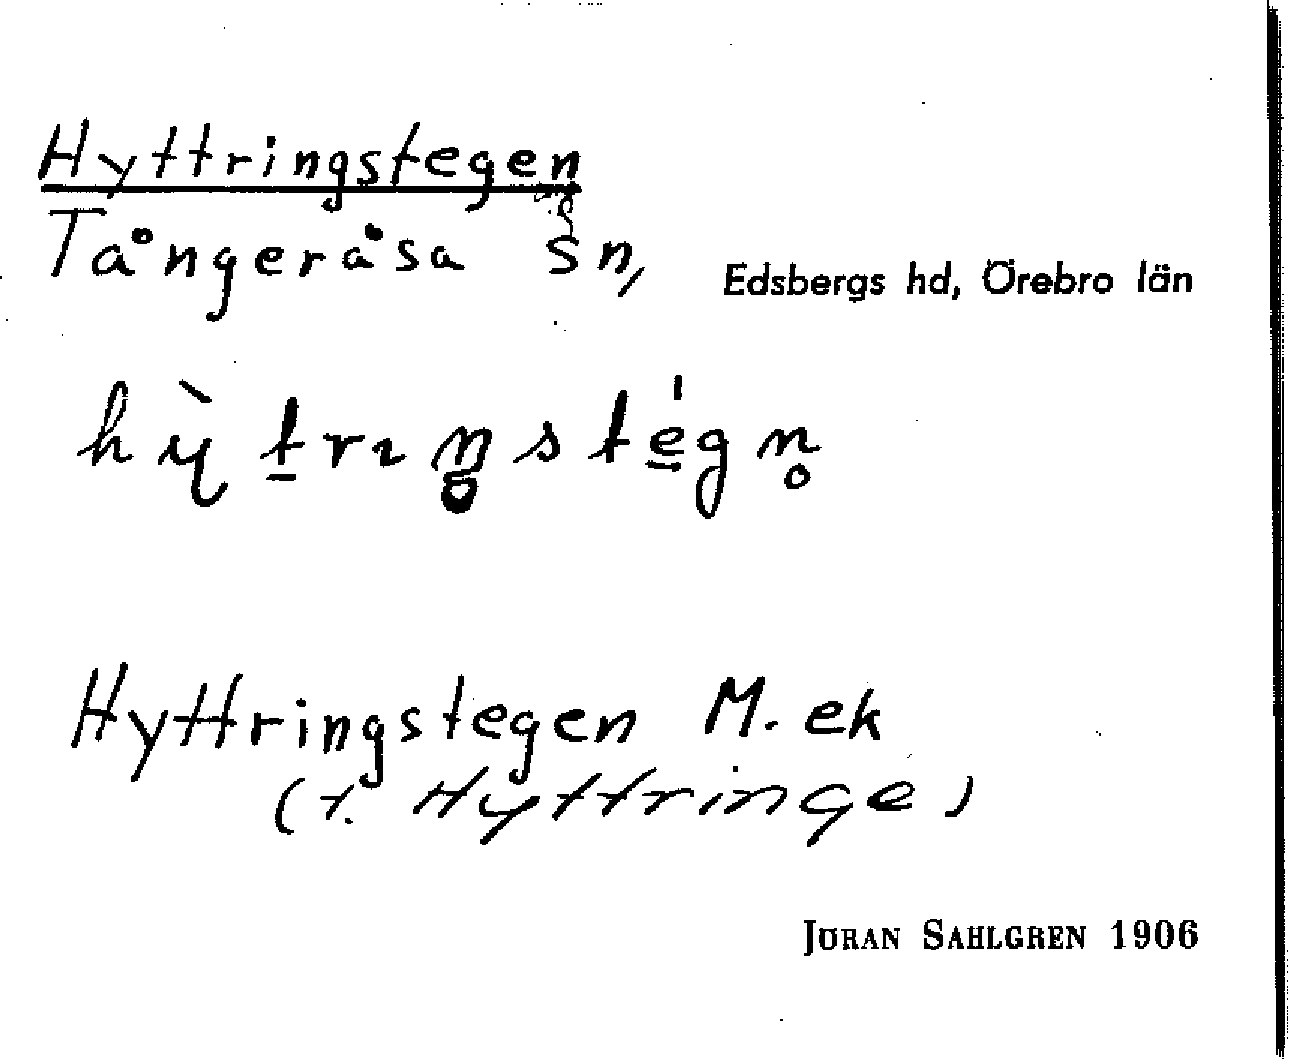 Hyttringstegen
Tångeråsa sn, Edsbergs hd, Örebro län
hỳt̲rıŋ̥sté̲gn̥
Hyttringstegen M. ek
(t. Hyttringe)
JÖRAN SAHLGREN 1906